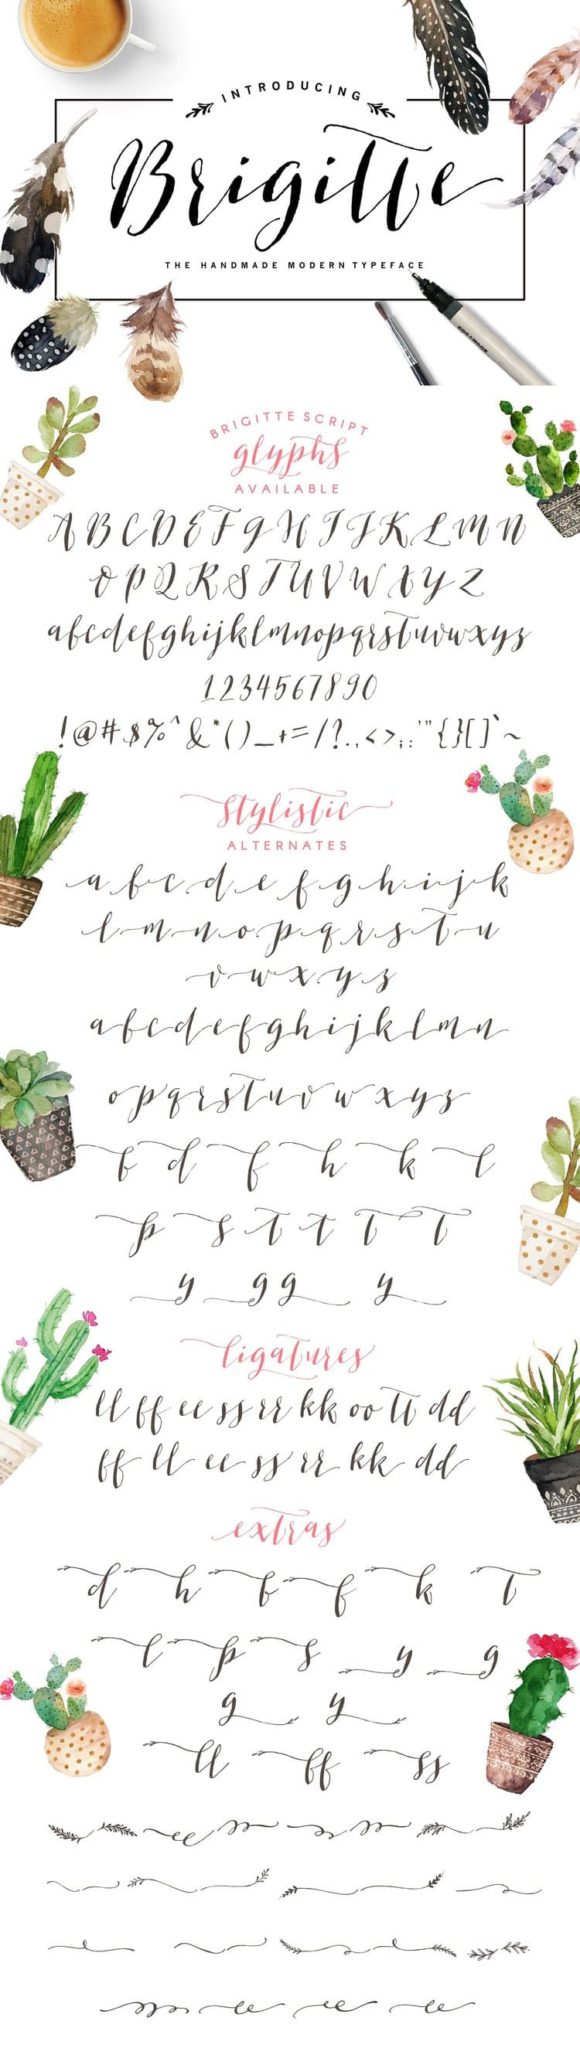 INTRODUCING
Brigitte
THE HANDMADE MODERN TYPEFACE
KOH-I-NOOR
BRIGITTE SCRIPT
glyphs
AVAILABLE
A B C D E F G H I J K L M N
O P Q R S T U V W X Y Z
abcdefghijklmnopqrstuvwxyz
1234567890
!@#$%^&*()_+=/?.,<>;:'"{}[]`~
stylistic
ALTERNATES
a b c d e f g h i j k
l m n o p q r s t u
v w x y z
a b c d e f g h i j k l m n
o p q r s t u v w x y z
b d f h k l
p s t t t t
y g g y
ligatures
ll ff ee ss rr kk oo tt dd
ff ll ee ss rr kk dd
extras
d h b f k t
l p s y g
g y
ll ff ss